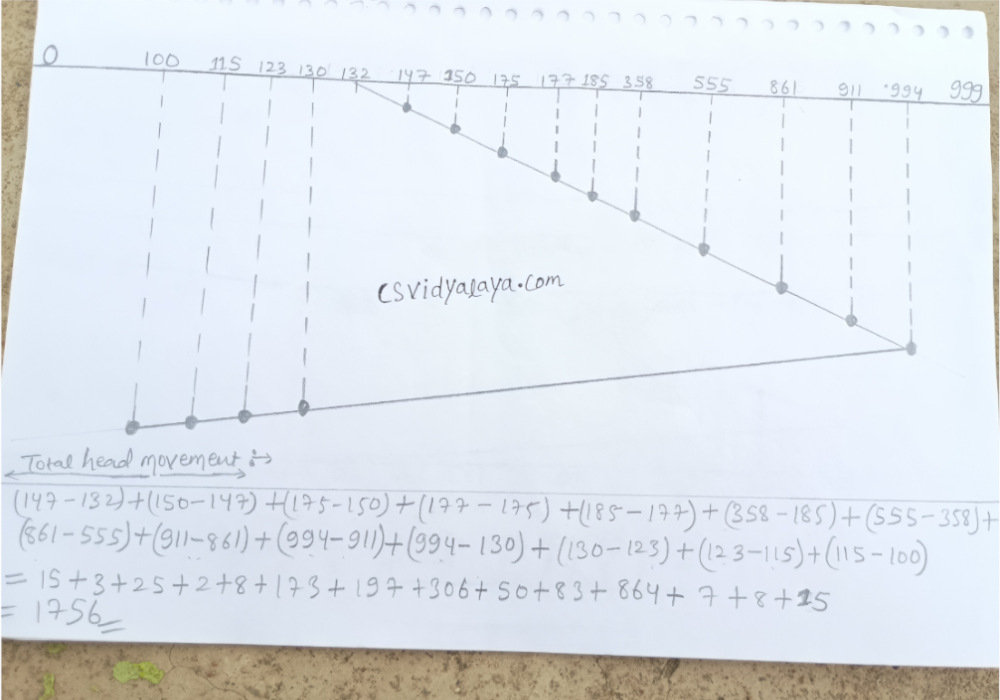 0 100 115 123 130 132 147 150 175 177 185 358 555 861 911 994 999
csvidyalaya.com
Total head movement :→
(147-132)+(150-147)+(175-150)+(177-175)+(185-177)+(358-185)+(555-358)+
(861-555)+(911-861)+(994-911)+(994-130)+(130-123)+(123-115)+(115-100)
= 15+3+25+2+8+173+197+306+50+83+864+7+8+15
= 1756